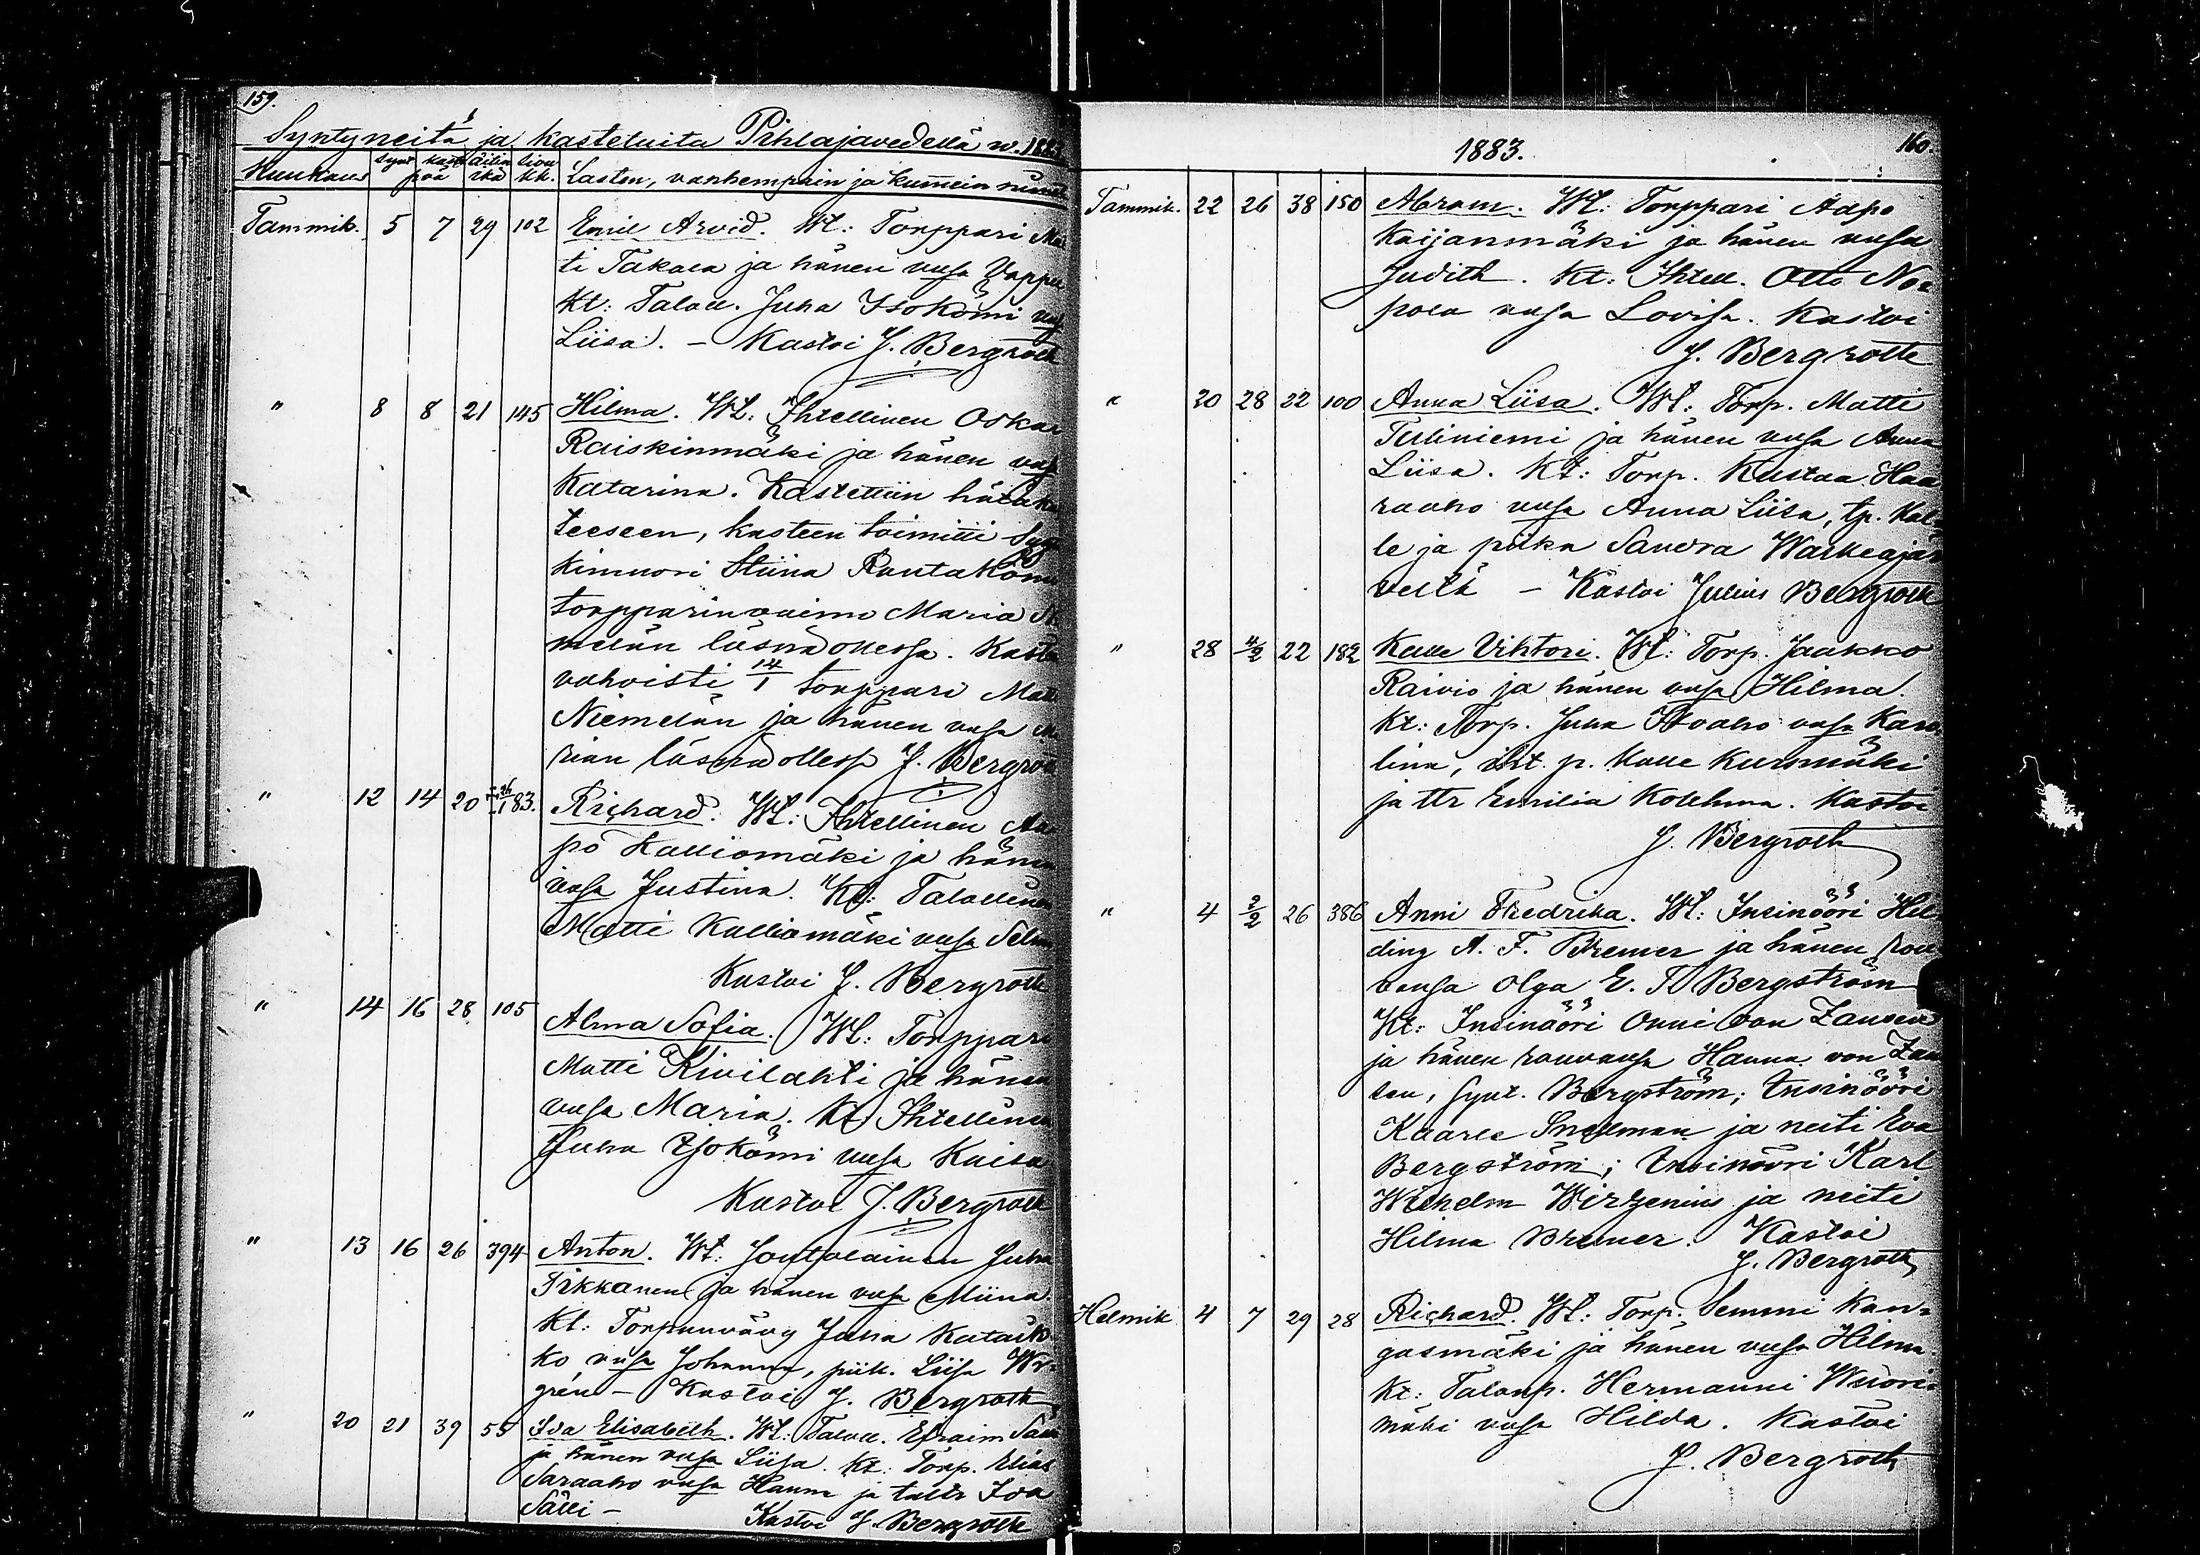 159.
Syntyneitä ja kasteluita Pihlajavedellä w. 1883
Kuukaus synt kast äitin sivu
päa ikä kk. Lasten, vanhempain ja kummein nimet
Tammik. 5 7 29 102 Emil Arvid. Wt: Torppari Mat
ti Takala ja hänen vmsa Vappu
Kt: Talall. Juha Isokömi vmsa
Liisa. - Kastoi J. Bergroth
" 8 8 21 145 Hilma. Wt: Ihtellinen Oskar
Raiskinmäki ja hänen vmsa
Katarina. Kastettiin hätäka
teeseen, kasteen toimitti
kimuori Stiina Rautakömi
torpparinvaimo Maria
melän läsnä ollessa. Kaste
vahvisti 14/1 torppari Matti
Niemelän ja hänen vmsa Ma
rian läsnä ollessa J. Bergroth
" 12 14 20 26/1 83. Richard. Wt: Ihtellinen Aa
po Kalliomäki ja hänen
vmsa Justina. Kt: Talallinen
Matti Kalliomäki vmsa Selma
Kastoi J. Bergroth
" 14 16 28 105 Alma Sofia. Wt: Torppari
Matti Kivilahti ja hänen
vmsa Maria. Kt: Ihtellinen
Juha Isokömi vmsa Kaisa
Kastoi J. Bergroth
" 13 16 26 394 Anton. Wt: Joutolainen Juha
Pikkanen ja hänen vmsa Miina.
Kt: Torpanvävy Juha Kataik
ko vmsa Johanna, piik. Liisa Wi-
grén - Kastoi J. Bergroth
" 20 21 39 55 Ida Elisabeth. Wt: Talall. Efraim Säll
ja hänen vmsa Liisa. Kt: Torp. Elias
Saraaho vmsa Hanna ja tattr Ida
Sälli - Kastoi J. Bergroth
1883. 160.
Tammik. 22 26 38 150 Abram. Wt: Torppari Aapo
Kaijanmäki ja hänen vmsa
Judith. Kt: Ihtell. Otto No-
pola vmsa Lovisa. Kastoi
J. Bergroth
" 20 28 22 100 Anna Liisa. Wt: Torp. Matti
Tuliniemi ja hänen vmsa Anna
Liisa. Kt: Torp. Kustaa Haa
raaho vmsa Anna Liisa, tp. Kal-
le ja piika Sandra Warkeajär
veltä - Kastoi Julius Bergroth
" 28 4/2 22 182 Kalle Vihtori. Wt: Torp. Jaakko
Raivio ja hänen vmsa Hilma.
Kt: Torp. Juha Isoaho vmsa Karo
lina, iht. p. Kalle Kurnmäki
ja ttr Emilia Kolehma. Kastoi
J. Bergroth
" 4 2/2 26 386 Anni Fredrika. Wt: Insinööri Hil
ding A. F. Bremer ja hänen rou
vansa Olga E. T. Bergström
Kt: Insinööri Onni von Zansen
ja hänen rouvansa Hanna von Zan
sen, synt. Bergström; Insinööri
Kaarle Snellman ja neiti Eva
Bergström; Insinööri Karl
Wilhelm Wirzenius ja neiti
Hilma Bremer. Kastoi
J. Bergroth
Helmik 4 7 29 28 Richard. Wt: Torp. Semmi Kan-
gasmäki ja hänen vmsa Hilma.
Kt: Talonp. Hermanni Wuori-
mäki vmsa Hilda. Kastoi
J. Bergroth